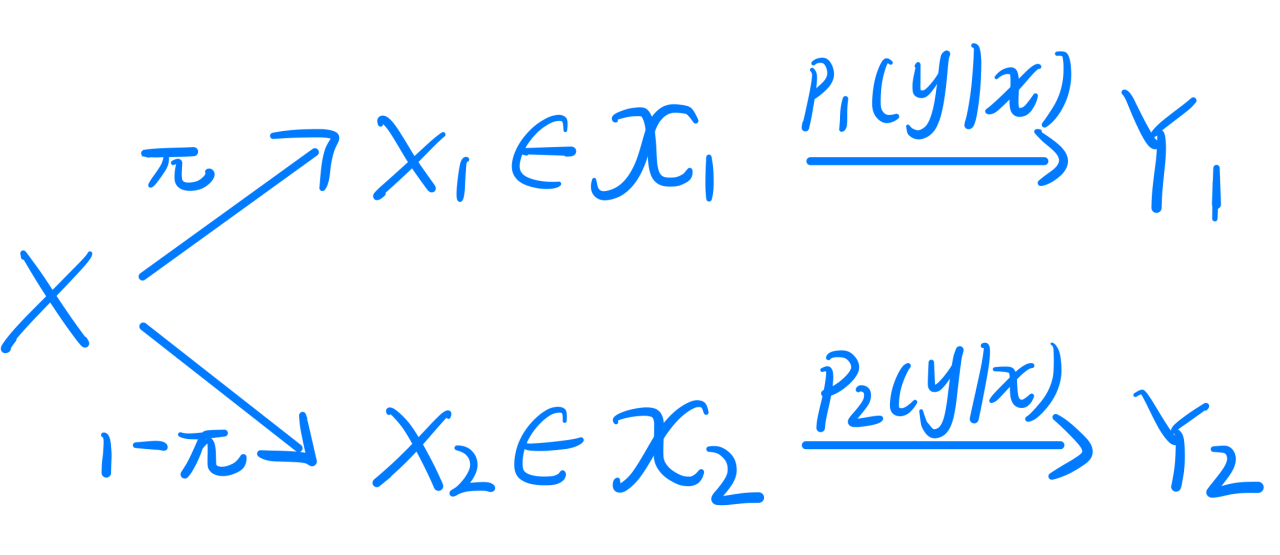 π X₁ ∈ 𝒳₁ p₁(y|x) Y₁
X
1-π X₂ ∈ 𝒳₂ p₂(y|x) Y₂